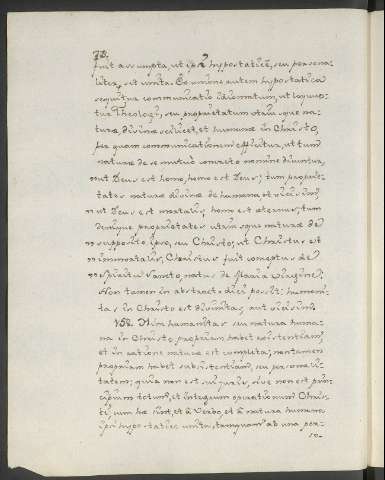 73.
fuit assumpta, ut ipsi hypostaticè, seu persona-
liter sit unita. Ex unione autem hypostatica
sequitur communicatio idiomatum, ut loquun-
tur Theologi, seu proprietatum utriusque na-
turæ, divinæ scilicet, et humanæ in Christo,
per quam communicationem efficitur, ut tum
naturæ de se mutuò concreto nomine dicantur,
ut Deus est homo, homo est Deus; tum proprie-
tates naturæ divinæ de humana et vicissim,
ut Deus est mortalis, homo est æternus; tum
denique proprietates utriusque naturæ de
supposito ipso, seu Christo, ut Christus est
immortalis, Christus fuit conceptus de
Spiritu Sancto, natus de Maria Virgine.
Non tamen in abstracto dici possit: humani-
tas in Christo est divinitas, aut vicissim.
152. Etim humanitas seu natura huma-
na in Christo, propriam habet existentiam,
et in ratione naturæ est completa; non tamen
propriam habet subsistentiam, seu personali-
tatem; quia non est sui juris, sive non est prin-
cipium totum, et integrum operationum Chris-
ti, cum hæ sint, et à Verbo, et à natura humana
ipsi hypostaticè unita, tamquam ab una per-
so-